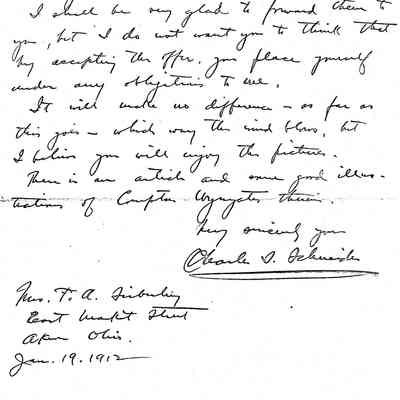 I shall be very glad to forward them to
you, but I do not want you to think that
by accepting the offer, you place yourself
under any obligations to me.
It will make no difference - as far as
this goes - which way the wind blows, but
I believe you will enjoy the pictures.
There is an article and some good illus-
trations of Compton Wynyates therein.
Very sincerely yours
Charles S. Schneider
Mrs. F. A. Seiberling
East Market Street
Akron Ohio.
Jan. 19. 1912